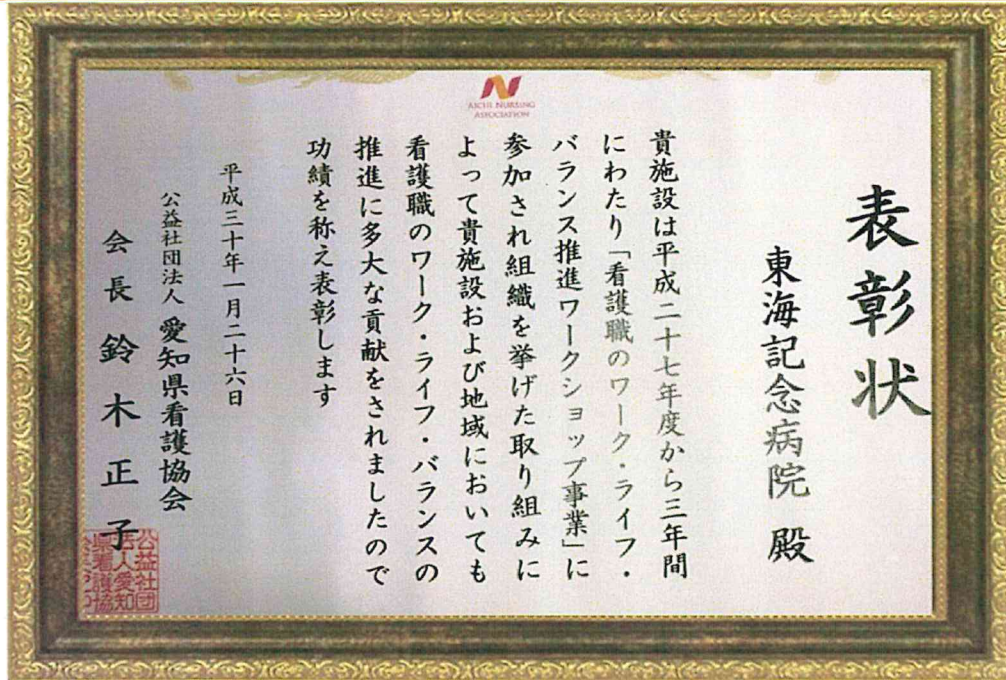 AICHI NURSING
ASSOCIATION
表彰状
東海記念病院 殿
貴施設は平成二十七年度から三年間
にわたり「看護職のワーク・ライフ・
バランス推進ワークショップ事業」に
参加され組織を挙げた取り組みに
よって貴施設および地域においても
看護職のワーク・ライフ・バランスの
推進に多大な貢献をされましたので
功績を称え表彰します
平成三十年一月二十六日
公益社団法人 愛知県看護協会
会長 鈴木正子
公益社団
法人愛知
県看護協